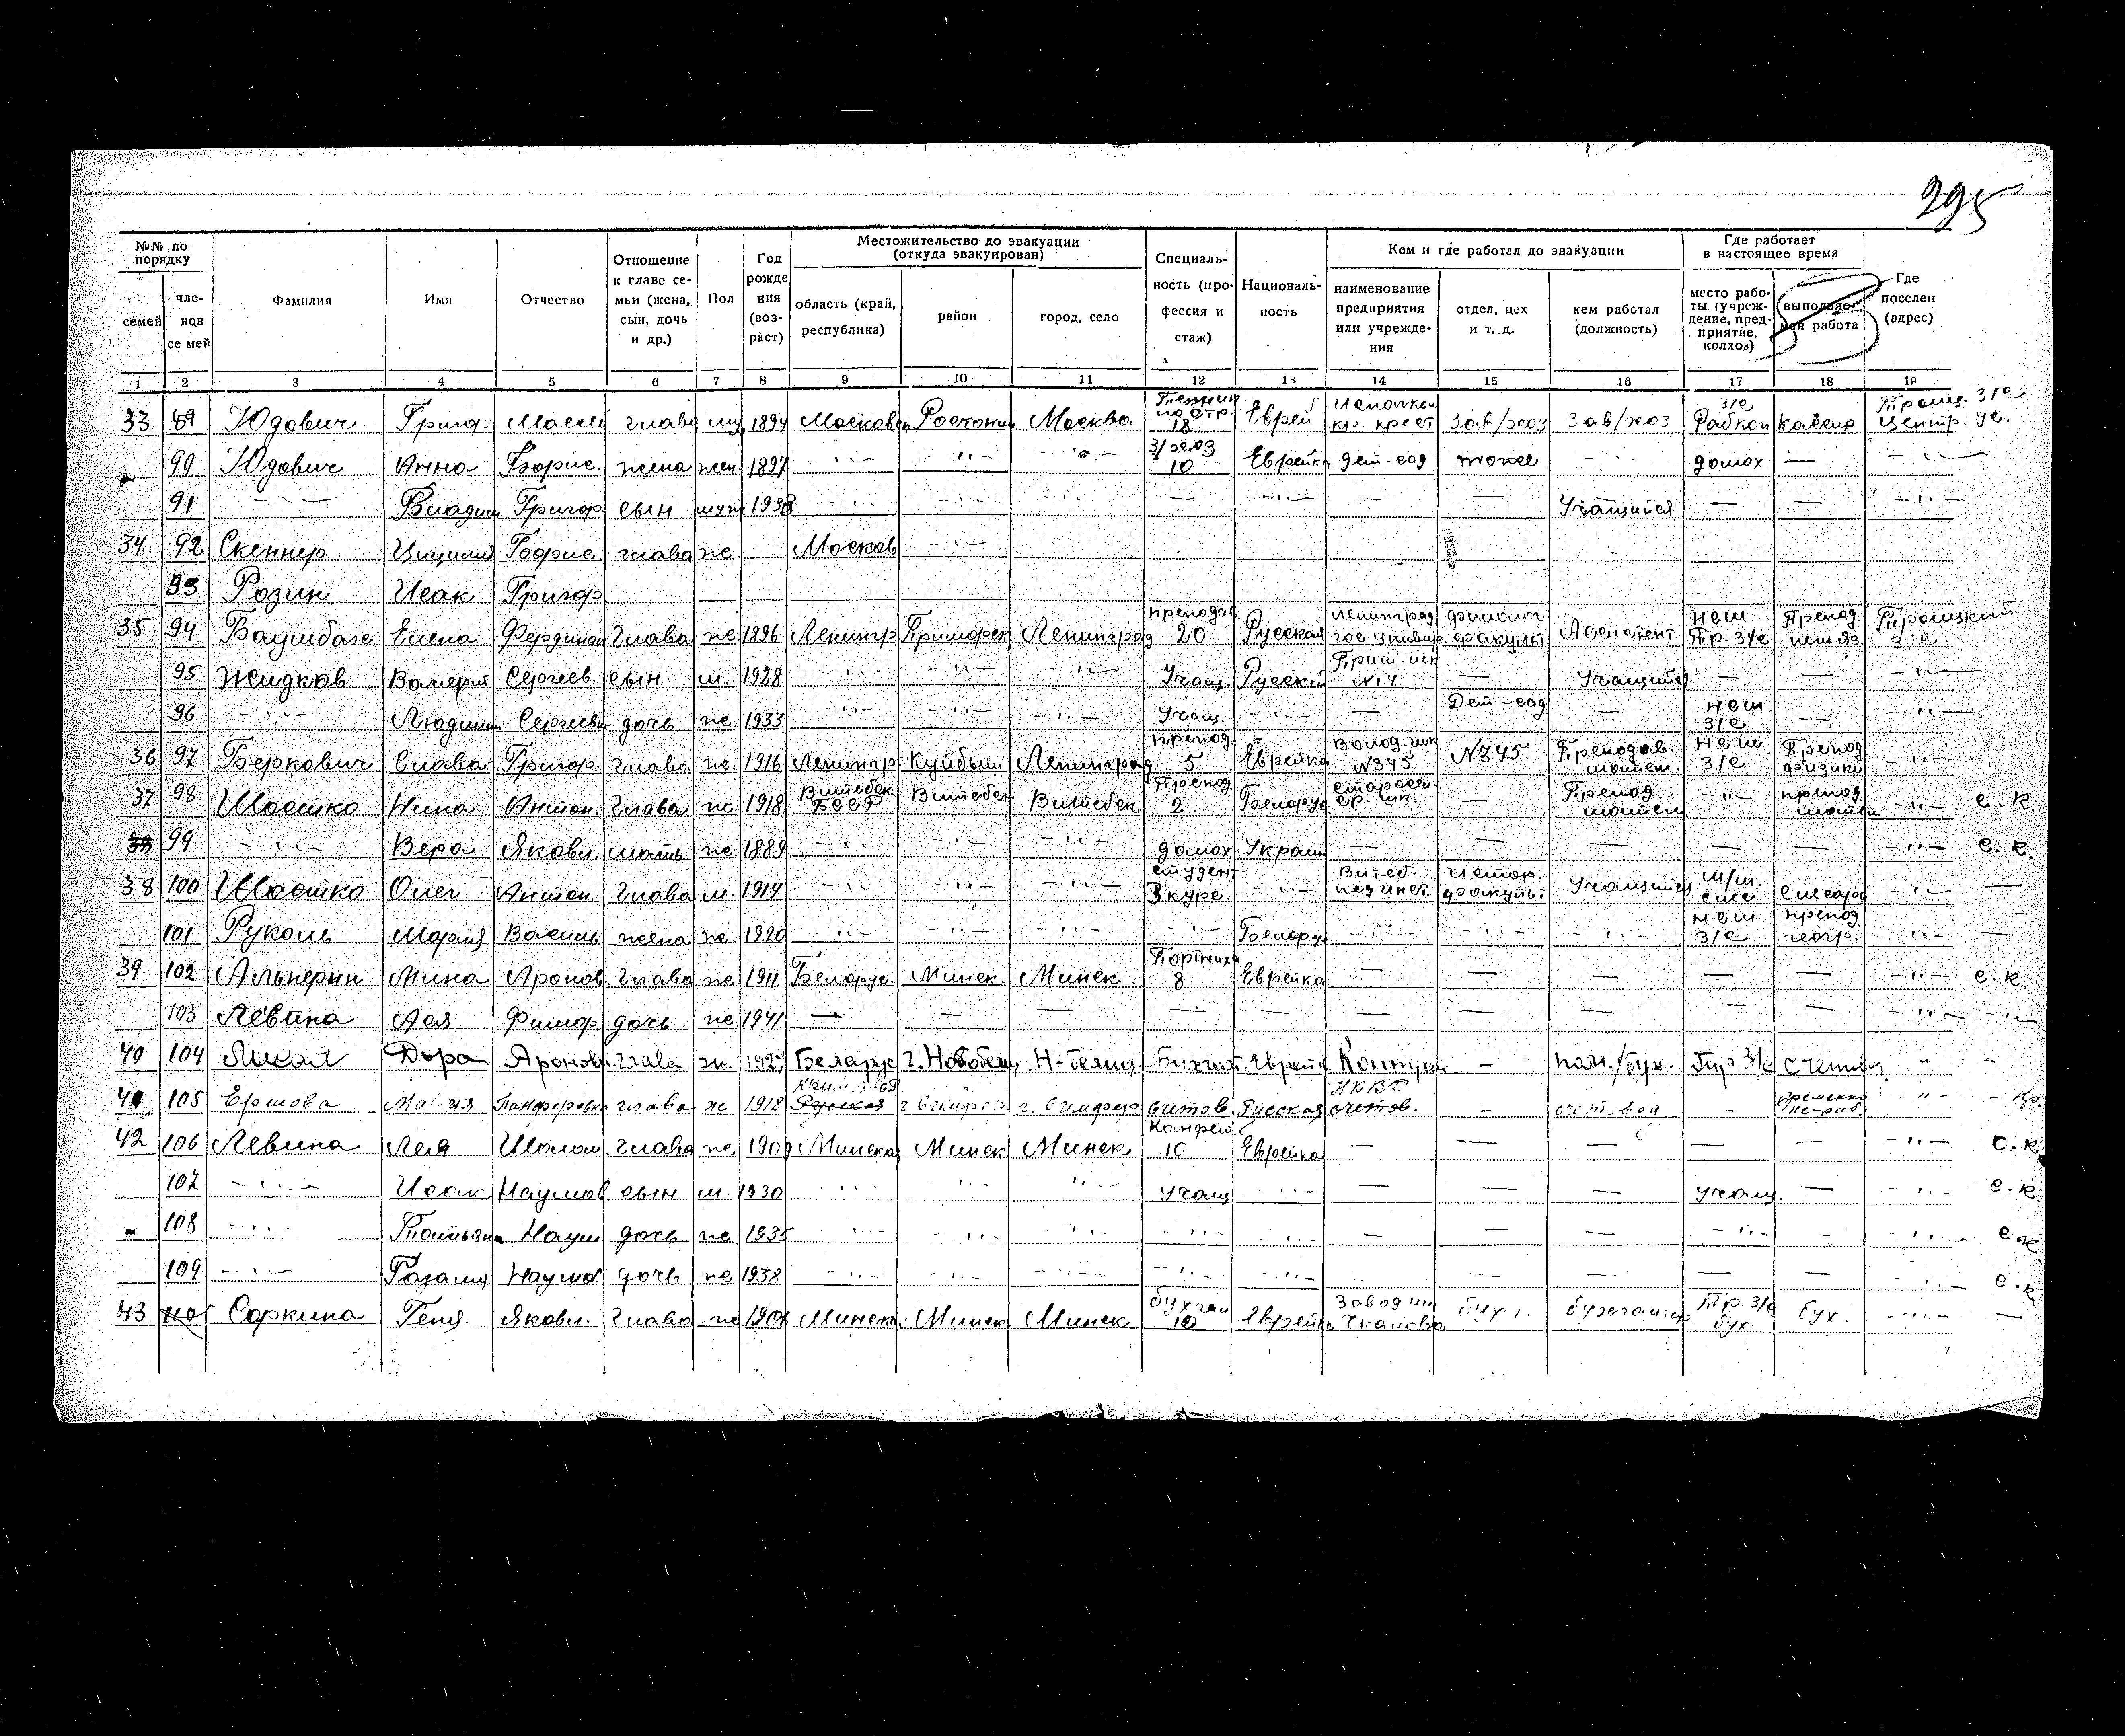 295
№№ по порядку
Фамилия
Имя
Отчество
Отношение к главе семьи (жена, сын, дочь и др.)
Пол
Год рождения (возраст)
Местожительство до эвакуации (откуда эвакуирован)
Специальность (профессия и стаж)
Националь-ность
Кем и где работал до эвакуации
Где работает в настоящее время
Где поселен (адрес)
семей
членов се мей
область (край, республика)
район
город, село
наименование предприятия или учреждения
отдел, цех и т. д.
кем работал (должность)
место работы (учреждение, предприятие, колхоз)
выполняемая работа
1 2 3 4 5 6 7 8 9 10 11 12 13 14 15 16 17 18 19
33 89 Юдович Григ. глава муж 1894 Москов Росток Москва Техник по стр. 18 Еврей кр. крест Зав/хоз Зав/хоз З/с Рабкоп кассир Троиц. З/с Центр. ус.
90 Юдович Анна Борис. жена жен. 1897 -"- -"- -"- З/хоз 10 Еврейка дет-сад тоже -"- домох — -"-
91 -"- Владим Григор сын муж 1938 -"- -"- -"- — -"- — — Учащийся — — -"-
34 92 Скеннер Борис. глава ж Москов -"-
93 Розин Исак Григор
35 94 Баумбах Елена Фердинан Глава ж 1896 Ленингр Приморск Ленинград преподав 20 Русская Ленинград гос универ филолг факульт Ассистент нсш Тр. З/с Препод. нем яз. Троицкий З/с
95 Жидков Валерий Сергеев. сын м. 1928 -"- -"- -"- Учащ. Русский Прим. шк №14 — Учащийся — — -"-
96 -"- Людмил Сергеевн дочь ж. 1933 -"- -"- -"- Учащ. -"- — Дет-сад — нсш З/с — -"-
36 97 Беркович Слава Григор. глава ж. 1916 Ленингр Куйбыш Ленинград препод. 5 Еврейка Волод. шк №345 №345 Преподав. матем. нсш З/с Препод физики -"-
37 98 Шостко Нина Антон. Глава ж 1918 Витебск. БССР Витебск Витебск Препод. 2 Белорус ср. шк. — Препод. матем -"- препод матем -"- с. к.
99 -"- Вера Яковл. мать ж 1889 -"- -"- -"- домох Украин — — — — — -"- с. к.
38 100 Шостко Олег Антон. Глава м. 1914 -"- -"- -"- студент 3 курс. -"- Витеб. пединст. Истор. факульт Учащийся слесарь -"- —
101 Руколь Мария Василь жена ж. 1920 -"- -"- -"- -"- Белорус -"- -"- -"- нсш З/с препод геогр. -"- —
39 102 Альперин Мина Аронов. Глава ж. 1911 Белорус. Минск. Минск. Портниха 8 Еврейка — — — — — -"- с. к.
103 Левина Ася дочь ж 1941 — — — — — — — — — — -"- -"-
40 104 Дора Ароновн. глава ж. 1927 Беларус г. Новобелиц Н-Белиц Бухгалт. Еврейк — пом./бух. Тр З/с Счетовод " "
41 105 Ершова Мария Панферовна глава ж 1918 Крым АССР Русская г Симфер г. Симфер счетов Русская НКВД счетов. — счетовод — временно не-раб. -"-
42 106 Левина Лея Шолом Глава ж. 1909 Минская Минск Минск 10 Еврейка — — — — — -"- с. к.
107 -"- Исак Наумов сын м. 1930 -"- -"- -"- учащ -"- — — — учащ. — -"- с. к.
108 -"- Татьяна Наум дочь ж 1935 -"- -"- -"- -"- — — — -"- — -"- с к
109 -"- Розалия Наумов дочь ж 1938 -"- -"- -"- — -"- — — — — — -"- с. к
43 110 Соркина Геня. Яковл. Глава ж Минская Минск Минск бухгал 10 Еврейка Завод бухг. бухгалтер Тр. З/с бух. бух. -"- —